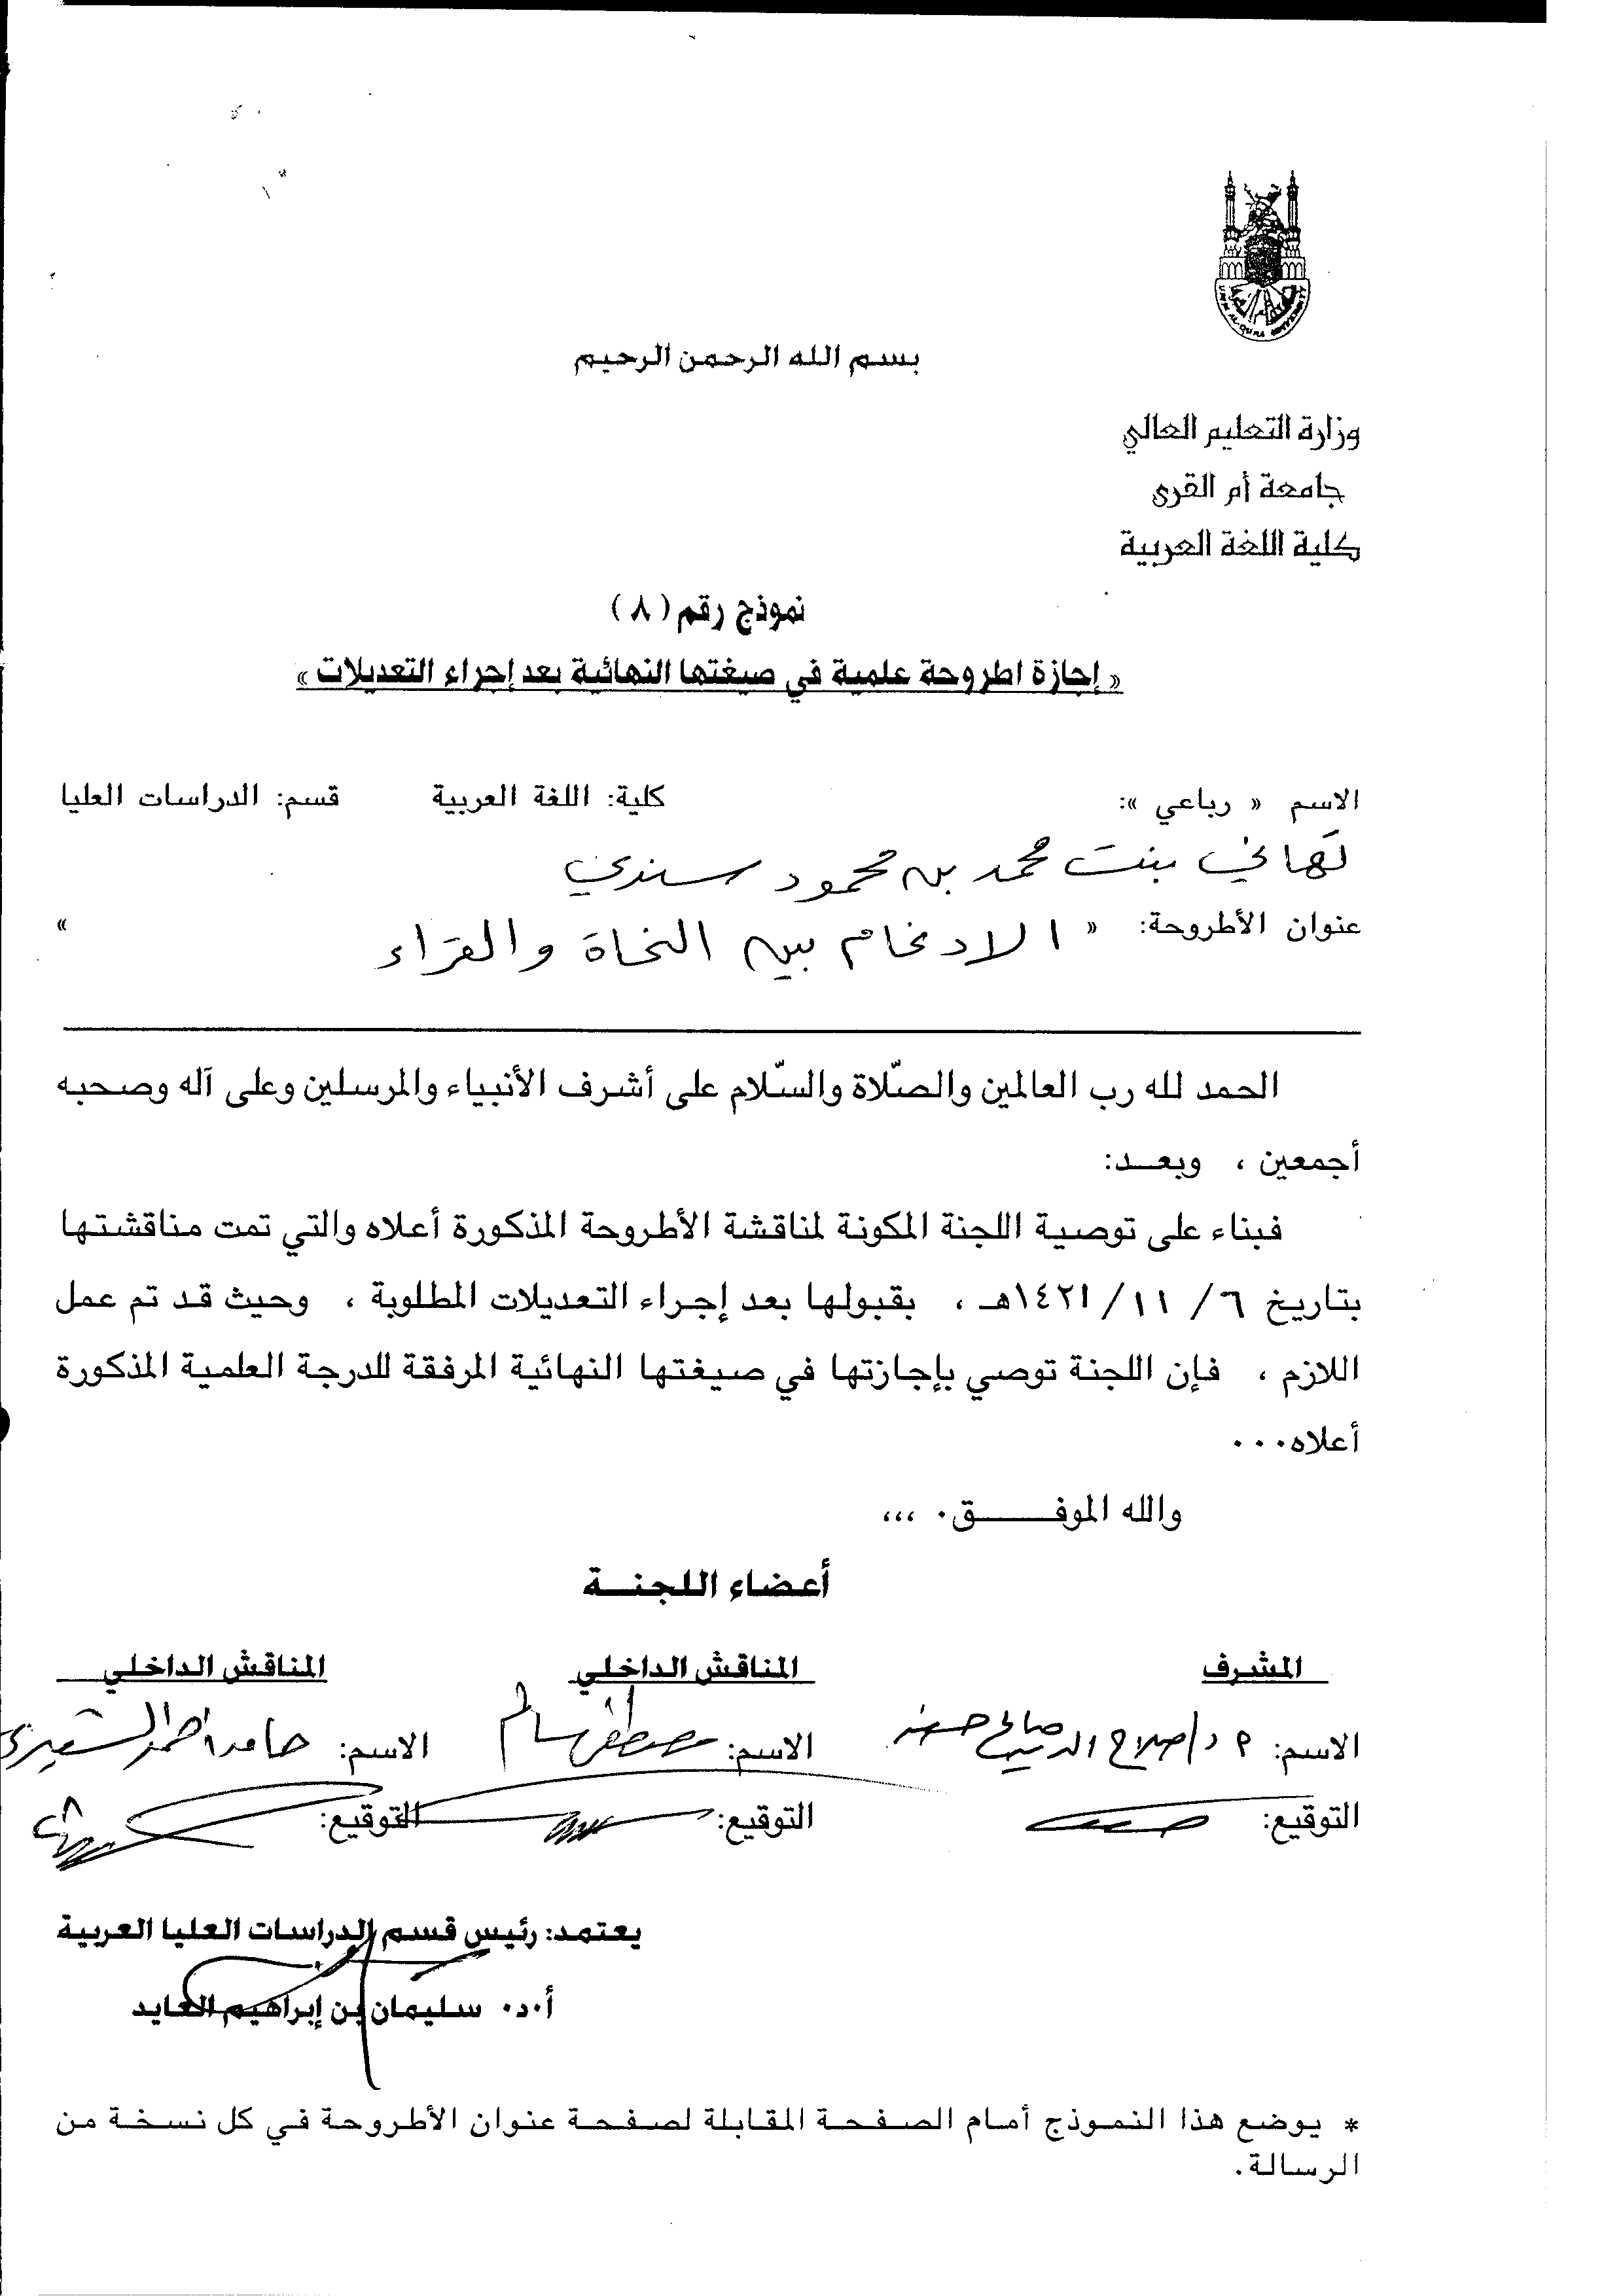 UMM AL-QURA UNIVERSITY
بسم الله الرحمن الرحيم
وزارة التعليم العالي
جامعة أم القرى
كلية اللغة العربية
نموذج رقم ( ٨ )
« إجازة اطروحة علمية في صيغتها النهائية بعد إجراء التعديلات »
الاسم « رباعي »: كلية: اللغة العربية قسم: الدراسات العليا
تهاني بنت محمد بن محمود سندي
عنوان الأطروحة: « الادغام بين النحاة والقراء »
الحمد لله رب العالمين والصّلاة والسّلام على أشرف الأنبياء والمرسلين وعلى آله وصحبه
أجمعين ، وبعــد:
فبناء على توصية اللجنة المكونة لمناقشة الأطروحة المذكورة أعلاه والتي تمت مناقشتها
بتاريخ ٦/ ١١ /١٤٢١هـ ، بقبولها بعد إجراء التعديلات المطلوبة ، وحيث قد تم عمل
اللازم ، فإن اللجنة توصي بإجازتها في صيغتها النهائية المرفقة للدرجة العلمية المذكورة
أعلاه...
والله الموفــــــق. ,,,
أعضاء اللجنــة
المشرف المناقش الداخلي المناقش الداخلي
الاسم: د/صلاح الدين صالح حسنين الاسم: مصطفى سالم الاسم: حامد أحمد الشنبري
التوقيع: التوقيع: التوقيع:
يعتمد: رئيس قسم الدراسات العليا العربية
أ.د. سليمان بن إبراهيم العايد
* يوضع هذا النموذج أمام الصفحة المقابلة لصفحة عنوان الأطروحة في كل نسخة من
الرسالة.